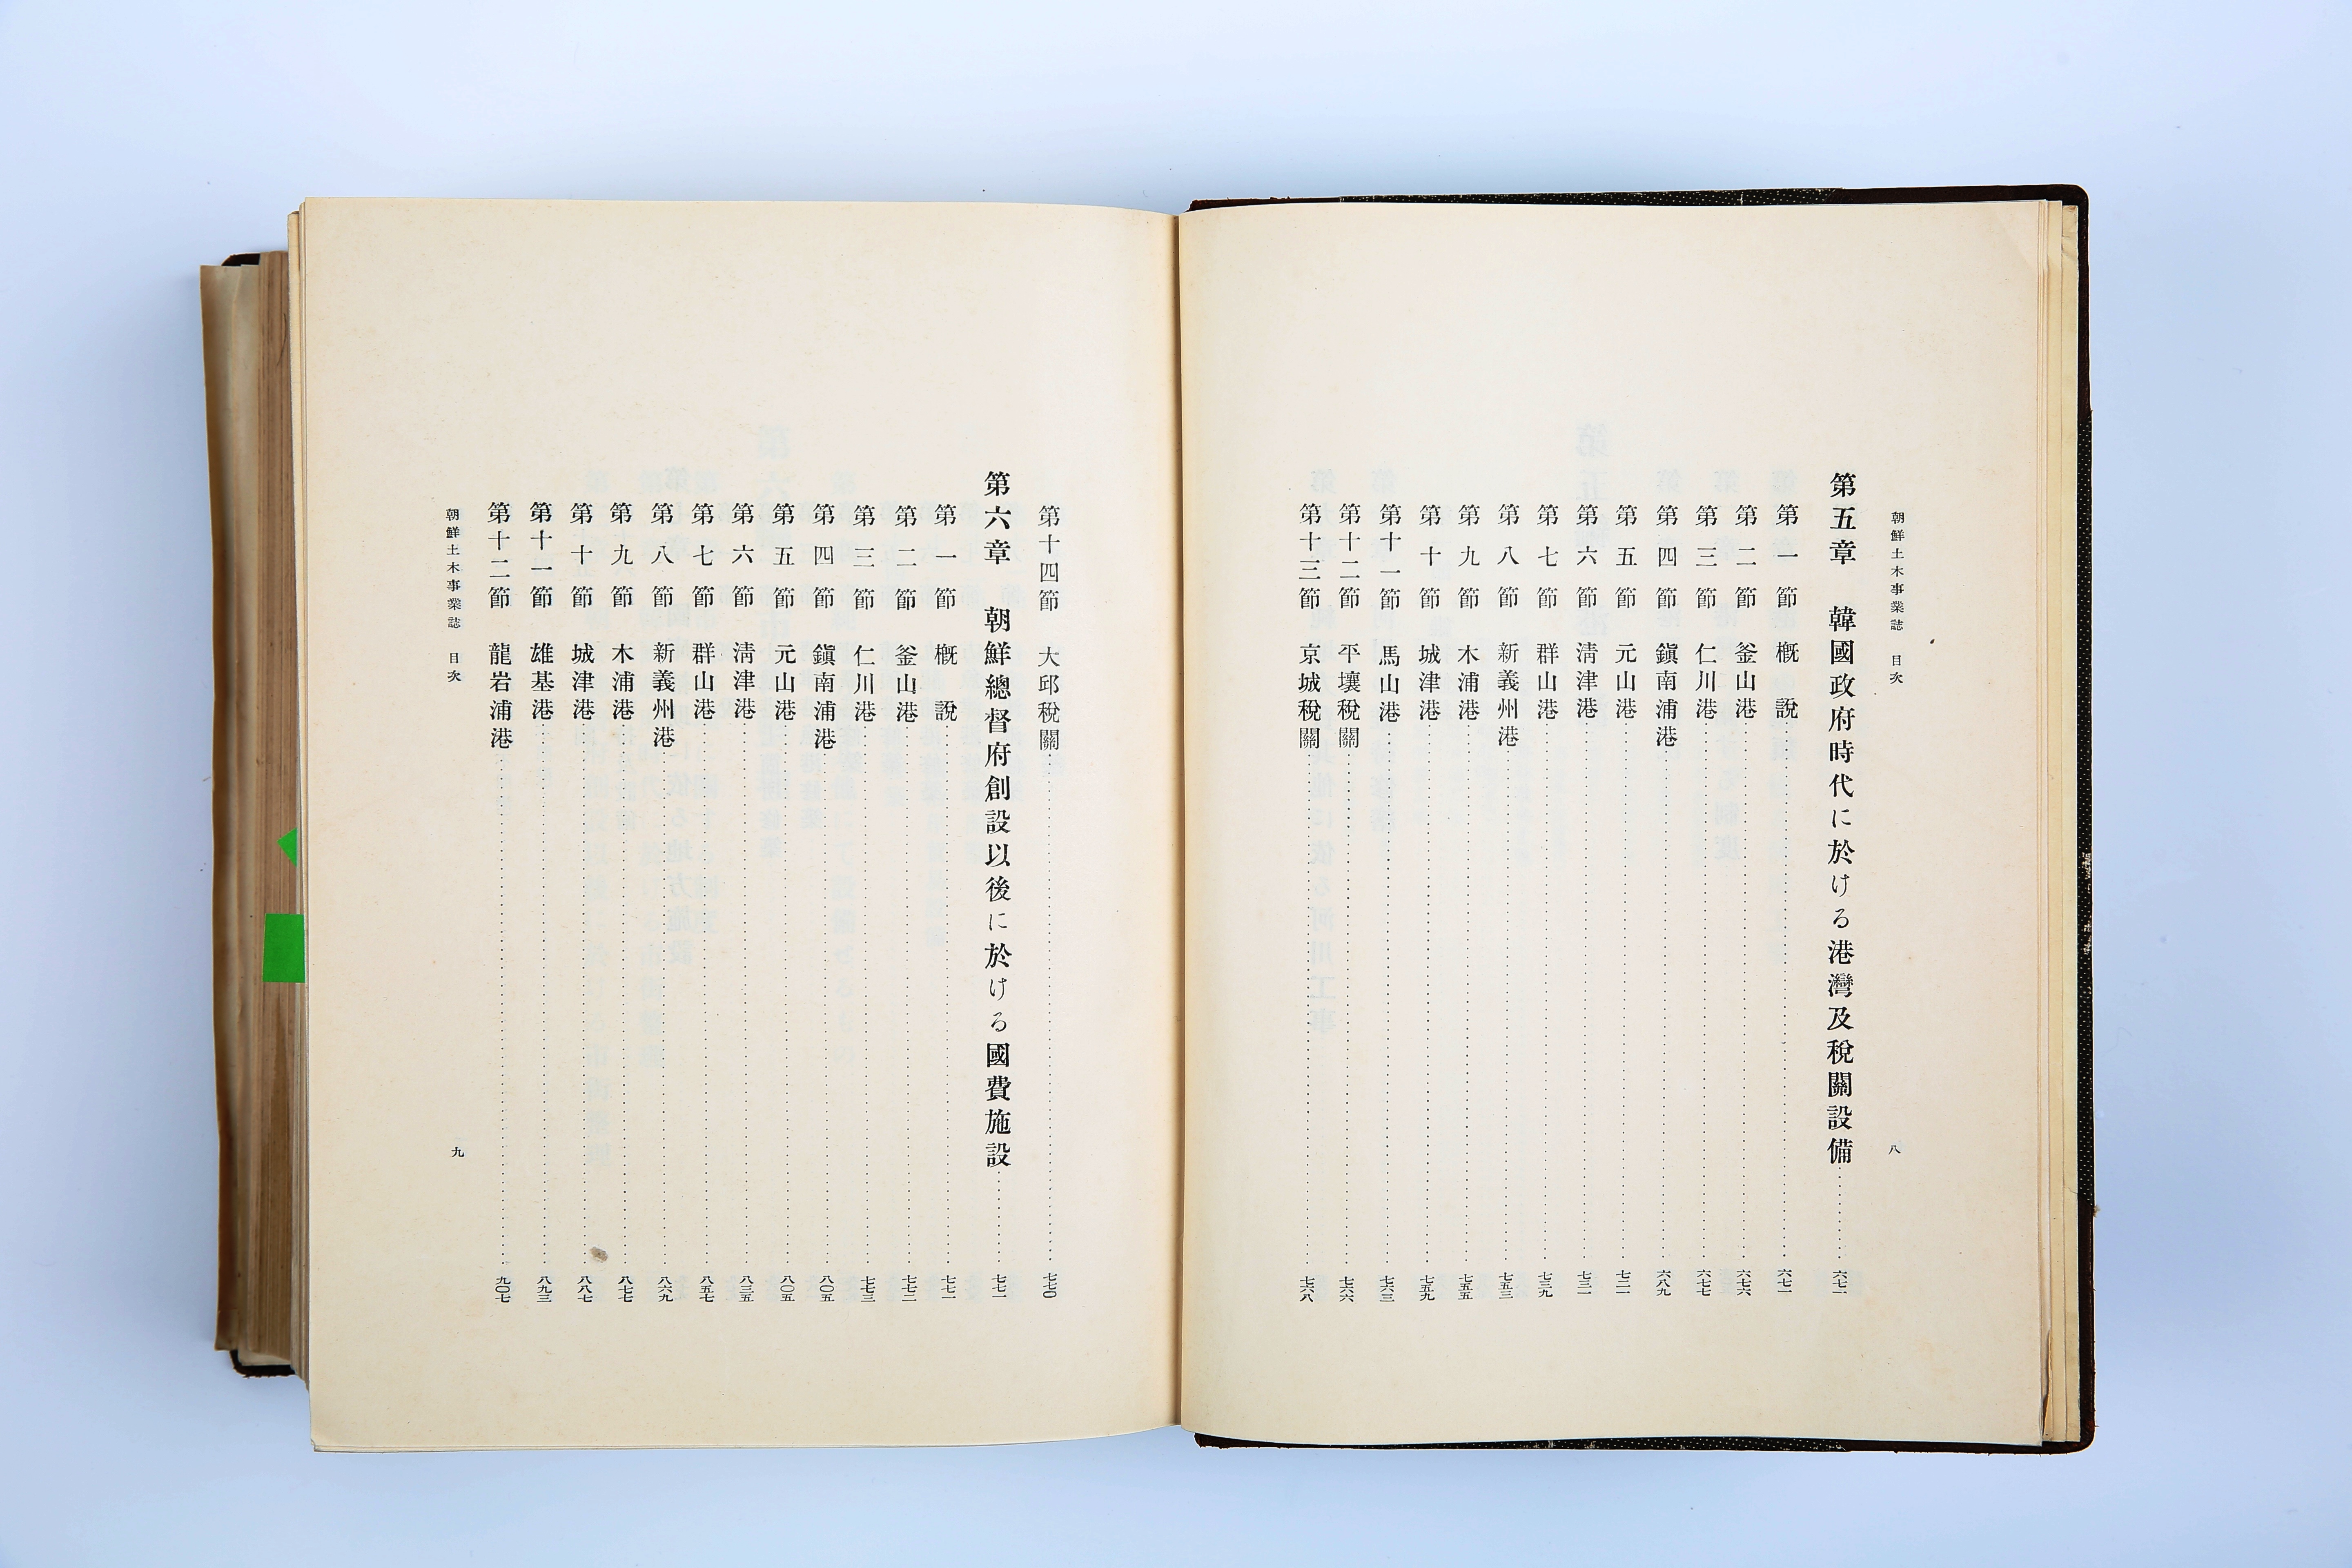 朝鮮土木事業誌 目次
八
第五章 韓國政府時代に於ける港灣及稅關設備……六七一
第一節 槪說……六七一
第二節 釜山港……六七六
第三節 仁川港……六七七
第四節 鎭南浦港……六八九
第五節 元山港……七二一
第六節 淸津港……七三一
第七節 群山港……七三九
第八節 新義州港……七五三
第九節 木浦港……七五五
第十節 城津港……七五九
第十一節 馬山港……七六三
第十二節 平壤稅關……七六六
第十三節 京城稅關……七六八
第十四節 大邱稅關……七七〇
第六章 朝鮮總督府創設以後に於ける國費施設……七七一
第一節 槪說……七七一
第二節 釜山港……七七二
第三節 仁川港……七七三
第四節 鎭南浦港……八〇五
第五節 元山港……八〇五
第六節 淸津港……八三五
第七節 群山港……八五七
第八節 新義州港……八六九
第九節 木浦港……八七七
第十節 城津港……八八七
第十一節 雄基港……八九三
第十二節 龍岩浦港……九〇七
朝鮮土木事業誌 目次
九